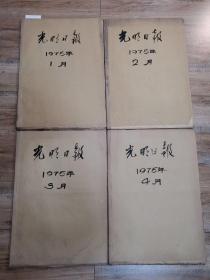 光明日报
1975年
1月
光明日报
1975年
2月
光明日报
1975年
3月
光明日报
1975年
4月